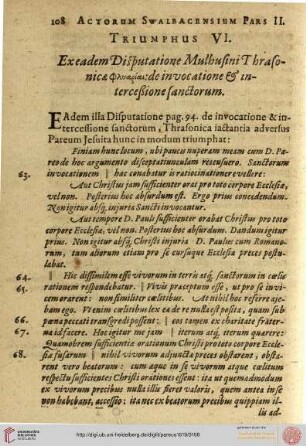 108 ACTORUM SWALBACENSIUM PARS II.
TRIUMPHUS VI.
Ex eadem Disputatione Mulhusini Thraso-
nicæ φλυαρίας: de invocatione & in-
tercessione sanctorum.
EAdem illa Disputatione pag. 94. de invocatione & in-
tercessione sanctorum, Thrasonica iactantia adversus
Pareum Jesuita hunc in modum triumphat:
Finiam hunc locum, ubi paucis nuperam meam cum D. Pa-
reo de hoc argumento disceptatiunculam recensuero. Sanctorum
63. invocationem || hac conabatur is ratiocinatione evellere:
Aut Christus jam sufficienter orat pro toto corpore Ecclesiæ,
vel non. Posterius hoc absurdum est. Ergo prius concedendum.
Non igitur absq; injuria Sancti invocantur.
Aut tempore D. Pauli sufficienter orabat Christus pro toto
corpore Ecclesiæ, vel non. Posterius hoc absurdum. Dandum igitur
prius. Non igitur absq; Christi injuria D. Paulus cum Romano-
rum, tum aliorum etiam pro se cursuque Ecclesiæ preces postu-
labat.
64. || His dissimilem esse vivorum in terris atq; sanctorum in cœlis
65. rationem respondebat. || Vivis præceptum esse, ut pro se invi-
cem orarent: non similiter cœlitibus. At nihil hoc referre aje-
bam ego. Utenim cœlitibus lex ea de re nulla est posita, quam sub
66. pæna peccati transgredi possent; || eos tamen ex charitate frater-
67. na id facere. Hoc igitur me jam || iterum atq; iterum quærere:
Quamobrem sufficientia orationum Christi pro toto corpore Eccle-
68. siæ fusarum || nihil vivorum adjuncta preces obstarent, obsta-
rent vero beatorum: cum æque in se vivorum atque cœlitum
respectu sufficientes Christi orationes essent: ita ut quemadmodum
ex vivorum precibus nulla illis fieret valoris, quem antea in se
non habebant, accessio: ita nec ex beatorum precibus quippiam il-
lis ad-
http://digi.ub.uni-heidelberg.de/diglit/pareus1619/0168